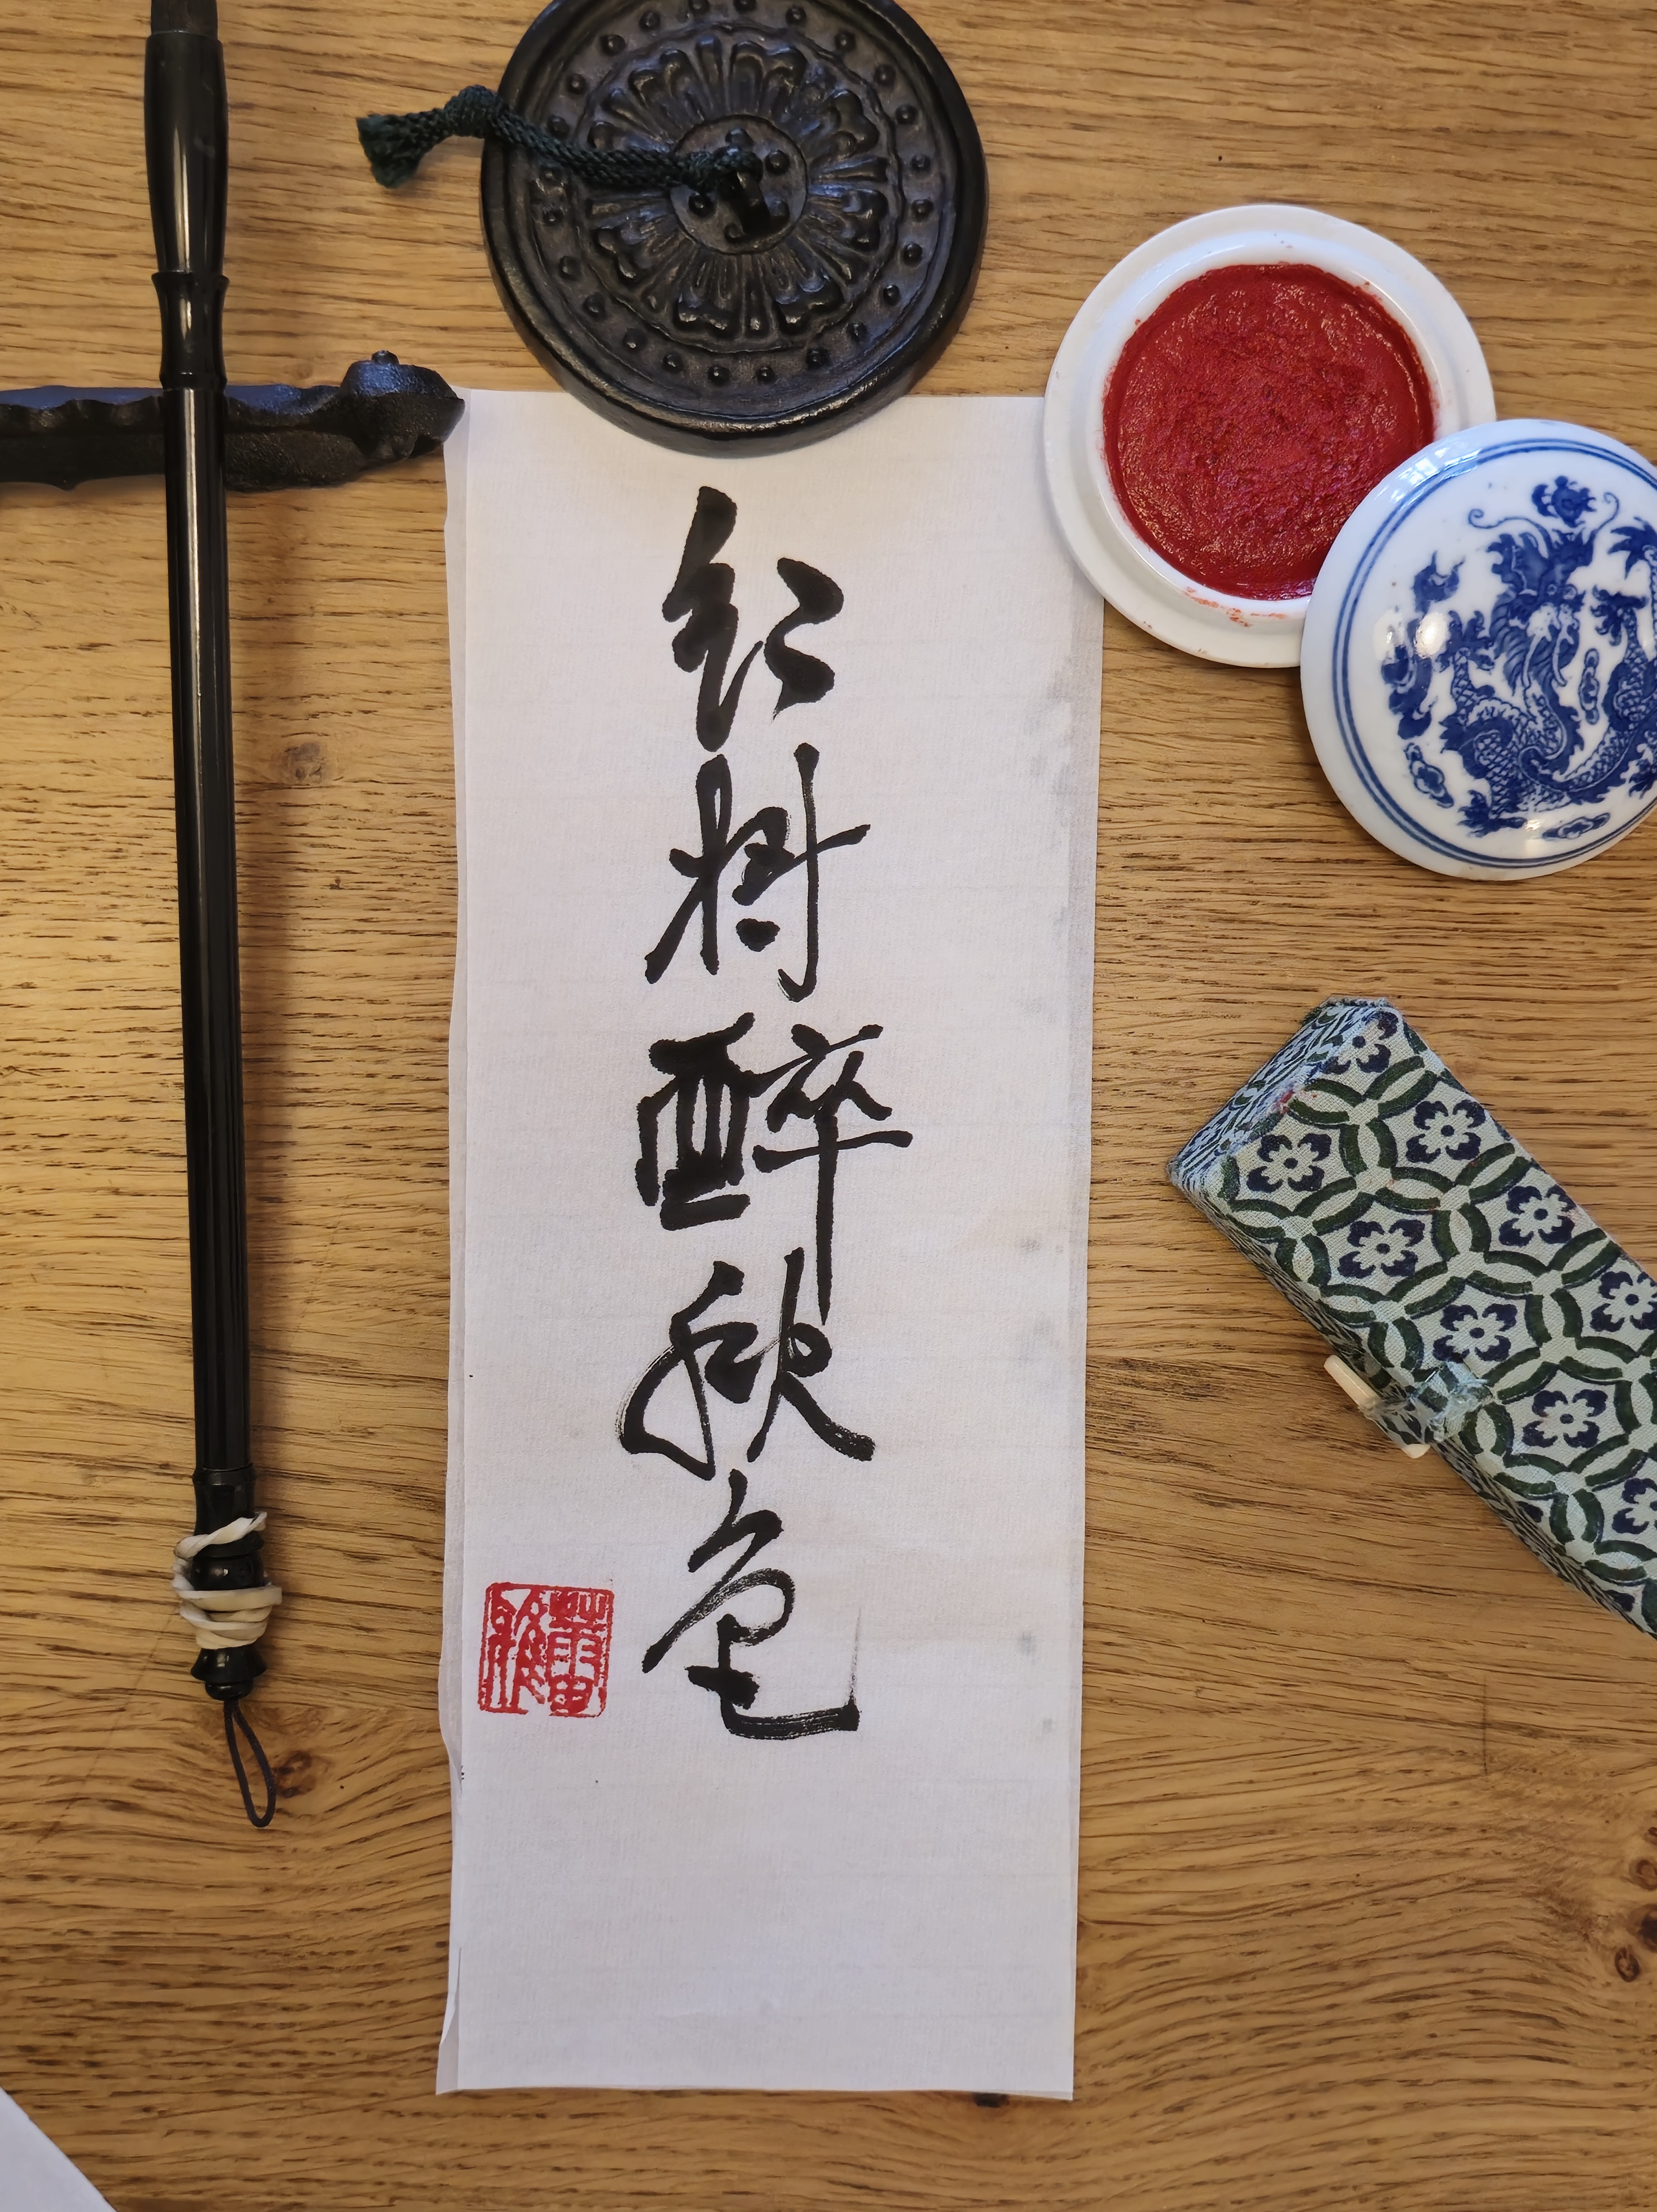 红树醉秋色